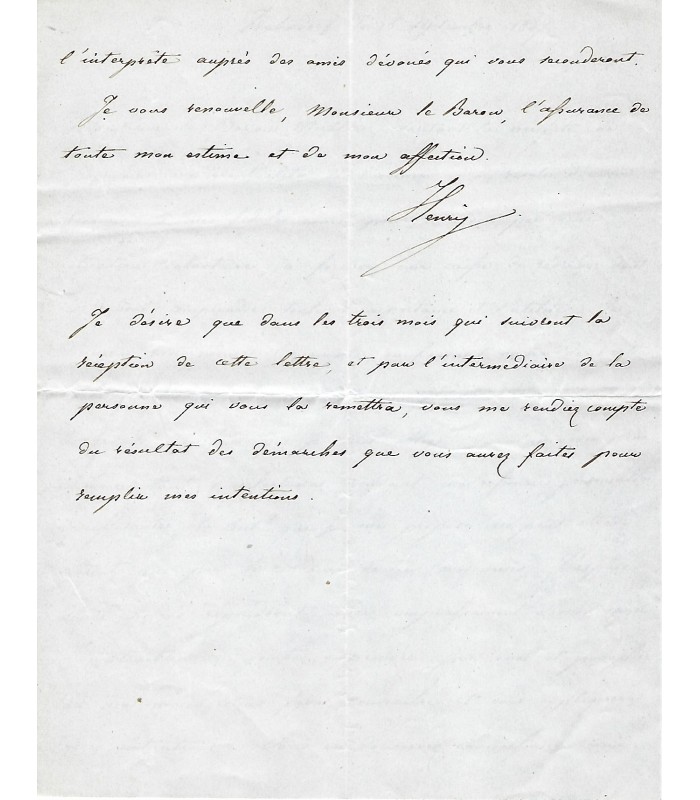 l'interprête auprès des amis dévoués qui vous seconderont.
Je vous renouvelle, Monsieur le Baron, l'assurance de
toute mon estime et de mon affection.
Henri
Je désire que dans les trois mois qui suivront la
réception de cette lettre, et par l'intermédiaire de la
personne qui vous la remettra, vous me rendiez compte
du résultat des démarches que vous aurez faites pour
remplir mes intentions.